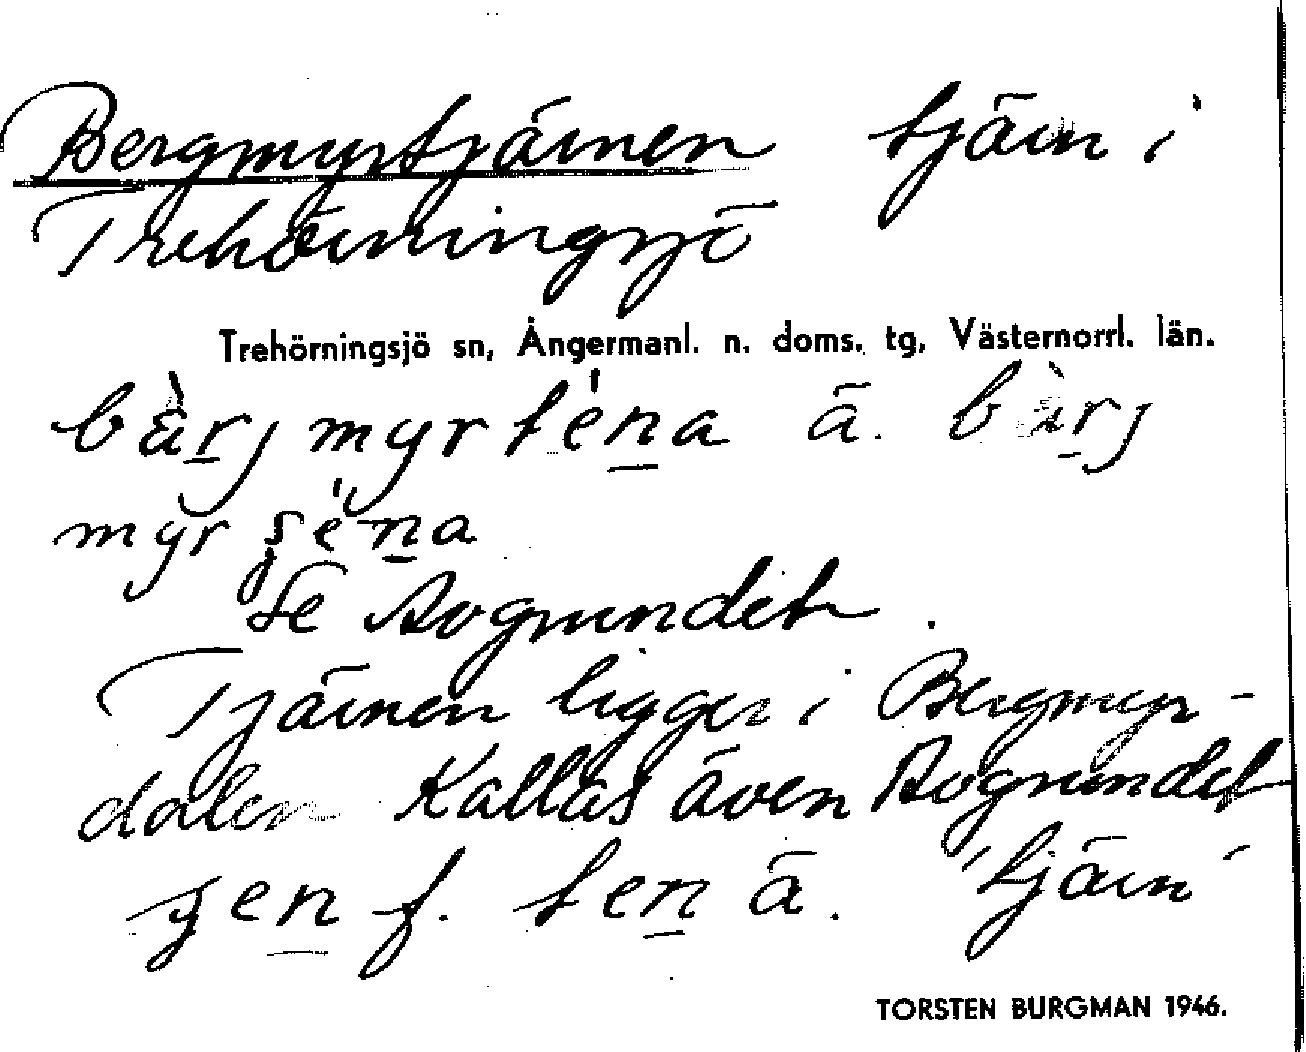 Bergmyrtjärnen tjärn i
Trehörningsjö
Trehörningsjö sn, Ångermanl. n. doms. tg, Västernorrl. län.
bàrj myr téna ä. bàrj
myr
Se Avgrundet.
Tjärnen ligger i Bergmyr-
dalen Kallas även Avgrundet
f. ten ä. "tjärn"
TORSTEN BURGMAN 1946.